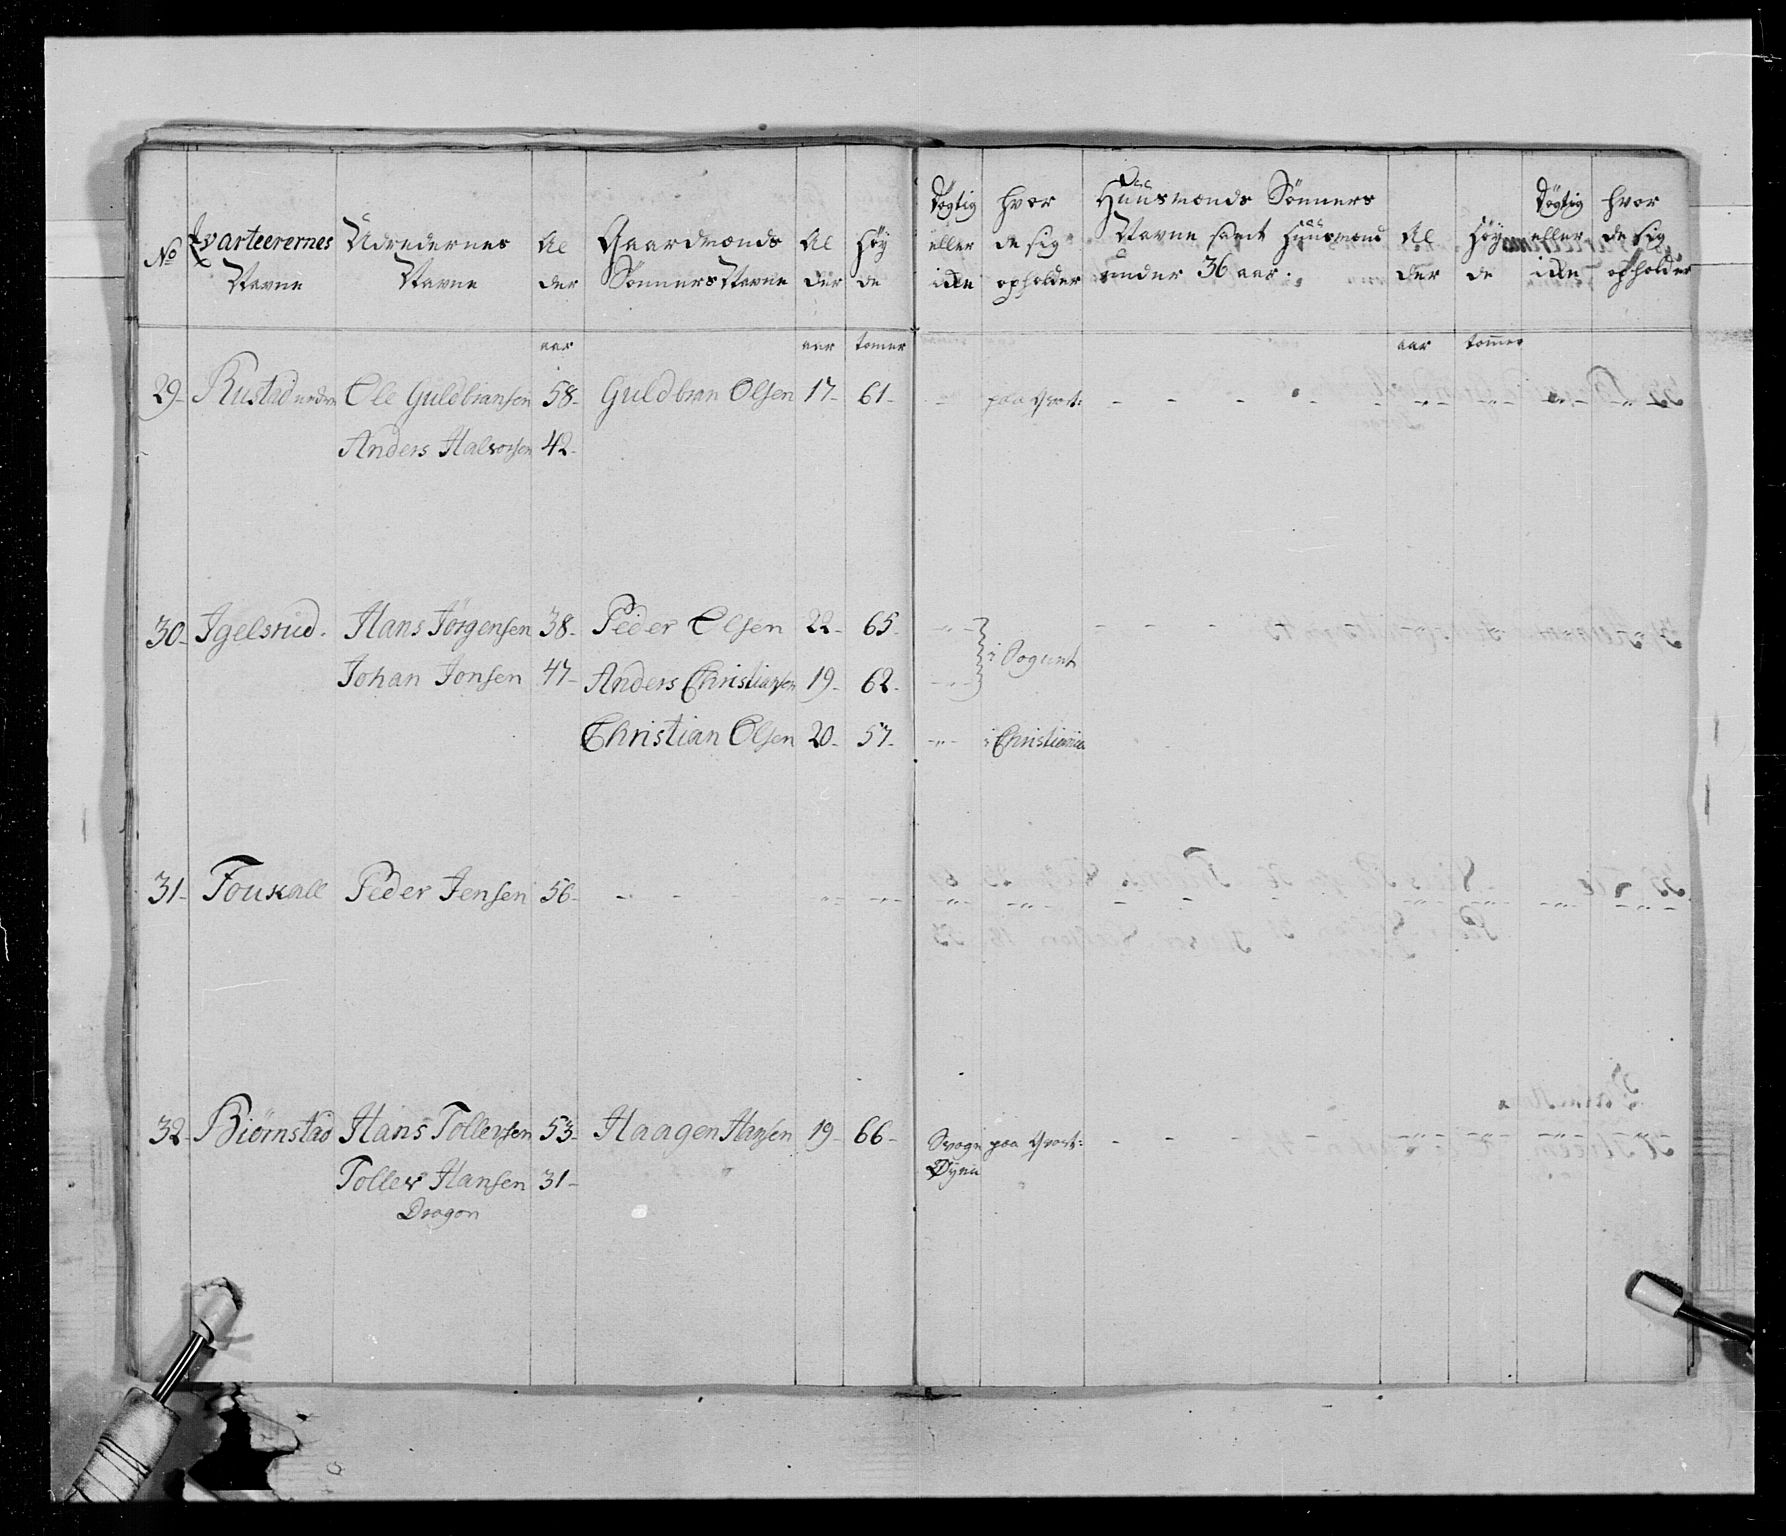 No Qvarteerernes Navne | Udredernes Navne | Al der | Gaardmænds Sønners Navne | Al der | Høy de | Døgtig eller ikke | hvor de sig opholder | Huusmænds Sønners Navne samt Huusmænd under 36 aar. | Al der | Høy de | Døgtig eller ikke | hvor de sig opholder
aar | aar | tomer | aar | tommer
29- Rustad nedre Ole Guldbransen 58- Guldbran Olsen 17- 61- -"- paa Qvart: - - - - - -"- -"- -"- -"-
Anders Halvorsen 42-
30- Igelsrud. Hans Jørgensen 38- Peder Olsen 22- 65- -"- - - - -
i Sognet
Johan Jonsen 47- Anders Christiansen 19- 62- -"-
Christian Olsen 20- 57- -"- i Christiania
31- Foukall Peder Jensen 56- - - - -"- -"- -"- -"- - - - -"- -"- -"- -"-
32- Biørnstad Hans Tollevsen 53- Haagen Hansen 19- 66- Svage paa Qvart: - - - - - -"- -"- -"- -"-
Øyne
Tollev Hansen 31-
Dragon